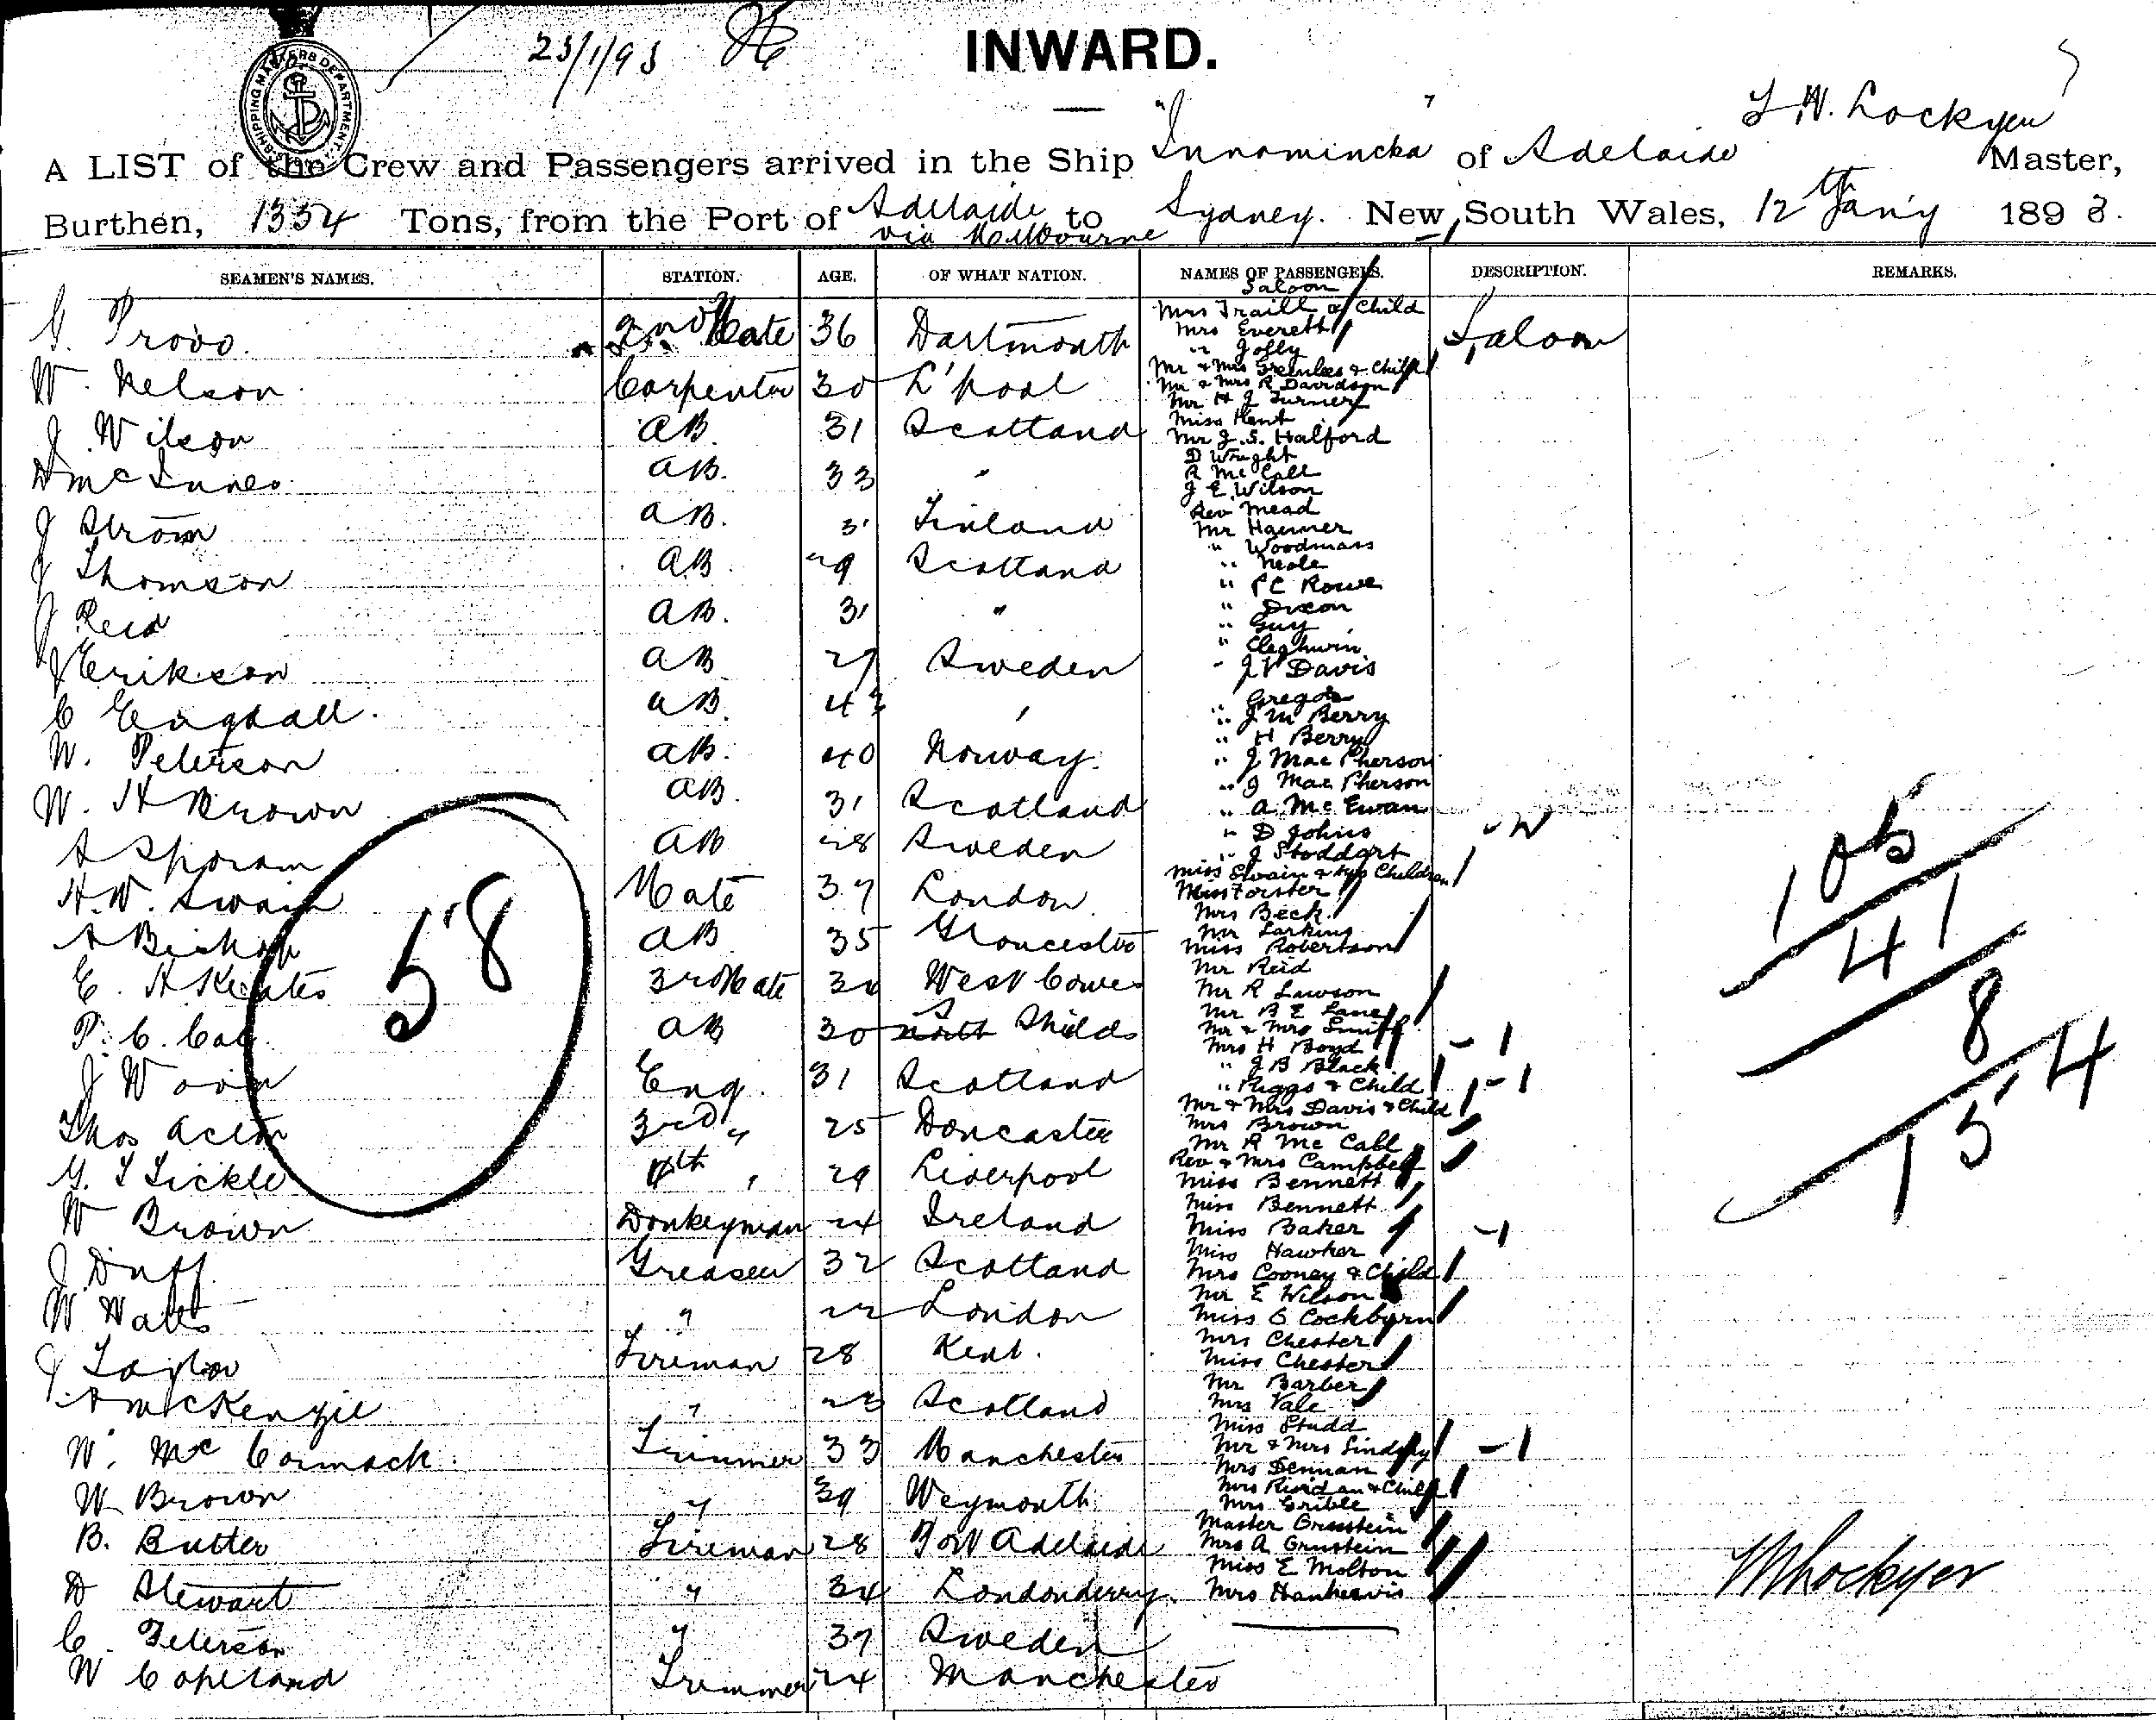 23/1/93
INWARD.
SHIPPING MASTERS DEPARTMENT
A LIST of the Crew and Passengers arrived in the Ship "Innamincka" of Adelaide Lockyer Master,
Burthen, 1334 Tons, from the Port of Adelaide via Melbourne to Sydney. New South Wales, 12th Jany 1893.
SEAMEN'S NAMES. STATION. AGE. OF WHAT NATION. NAMES OF PASSENGERS. DESCRIPTION. REMARKS.
G. Provo. 2nd Mate 36 Dartmouth
W. Nelson Carpenter 30 L'pool
J Wilson AB. 31 Scotland
D McInnes AB. 33 "
J Strom AB. 31 Finland
J Thomson AB. 29 Scotland
J Reid AB. 31 "
J Erikson AB 27 Sweden
C Engdall. AB. 43 "
W. Peterson AB. 40 Norway.
W. H Brown AB. 31 Scotland
A AB 28 Sweden
H.W. Swain Mate 37 London
A Bishop AB 35 Gloucester
E. A Keates 3rd Mate West Cowes
P. C. AB 30 S Shields
J Eng. 31 Scotland
Thos Acton 3rd " 25 Doncaster
G. T Tickle 4th " 29 Liverpool
W Brown Donkeyman 24 Ireland
J Duff. Greaser 32 Scotland
W Watts " 22 London
J Taylor Fireman 28 Kent.
A McKenzie " 23 Scotland
W. McCormack. Trimmer 33 Manchester
W Brown " 39 Weymouth
B. Butter Fireman 28 Port Adelaide
D Stewart " 34 Londonderry.
C. Peterson " 37 Sweden
W Copeland Trimmer 24 Manchester
58
Saloon
Mrs Traill & Child
Mrs Everett
" Jolly
Mr & Mrs Greenlees & Child
Mr & Mrs R Davidson
Mr H J Turner
Miss Kent
Mr J. S. Halford
D Wright
R McCall
J E Wilson
Rev Mead
Mr Hammer
" Woodmass
" Neale
" P C Rowe
" Dixon
" Guy
"
" J V Davis
" Gregor
" J M Berry
" H Berry
" J MacPherson
" J MacPherson
" A. McEwan
" D Johns
" J Stoddart
Miss Swain & two Children
Miss Forster
Mrs Beck
Mr Larking
Miss Robertson
Mr Reid
Mr R Lawson
Mr B E Lane
Mr & Mrs Smith
Mrs H Boyd
" J B Black
" Riggs & Child
Mr & Mrs Davis & Child
Mrs Brown
Mr R McCall
Rev & Mrs Campbell
Miss Bennett
Miss Bennett
Miss Baker
Miss Hawker
Mrs Cooney & Child
Mr E Wilson
Miss C Cockbyrn
Mrs Chester
Miss Chester
Mr Barber
Mrs Vale
Miss Studd
Mr & Mrs Lindsay
Mrs Dennan
Mrs Riordan & Child
Mrs Grible
Master Grunstein
Mrs A Grunstein
Miss E Molton
Mrs
Saloon
105
41
8
154
Lockyer